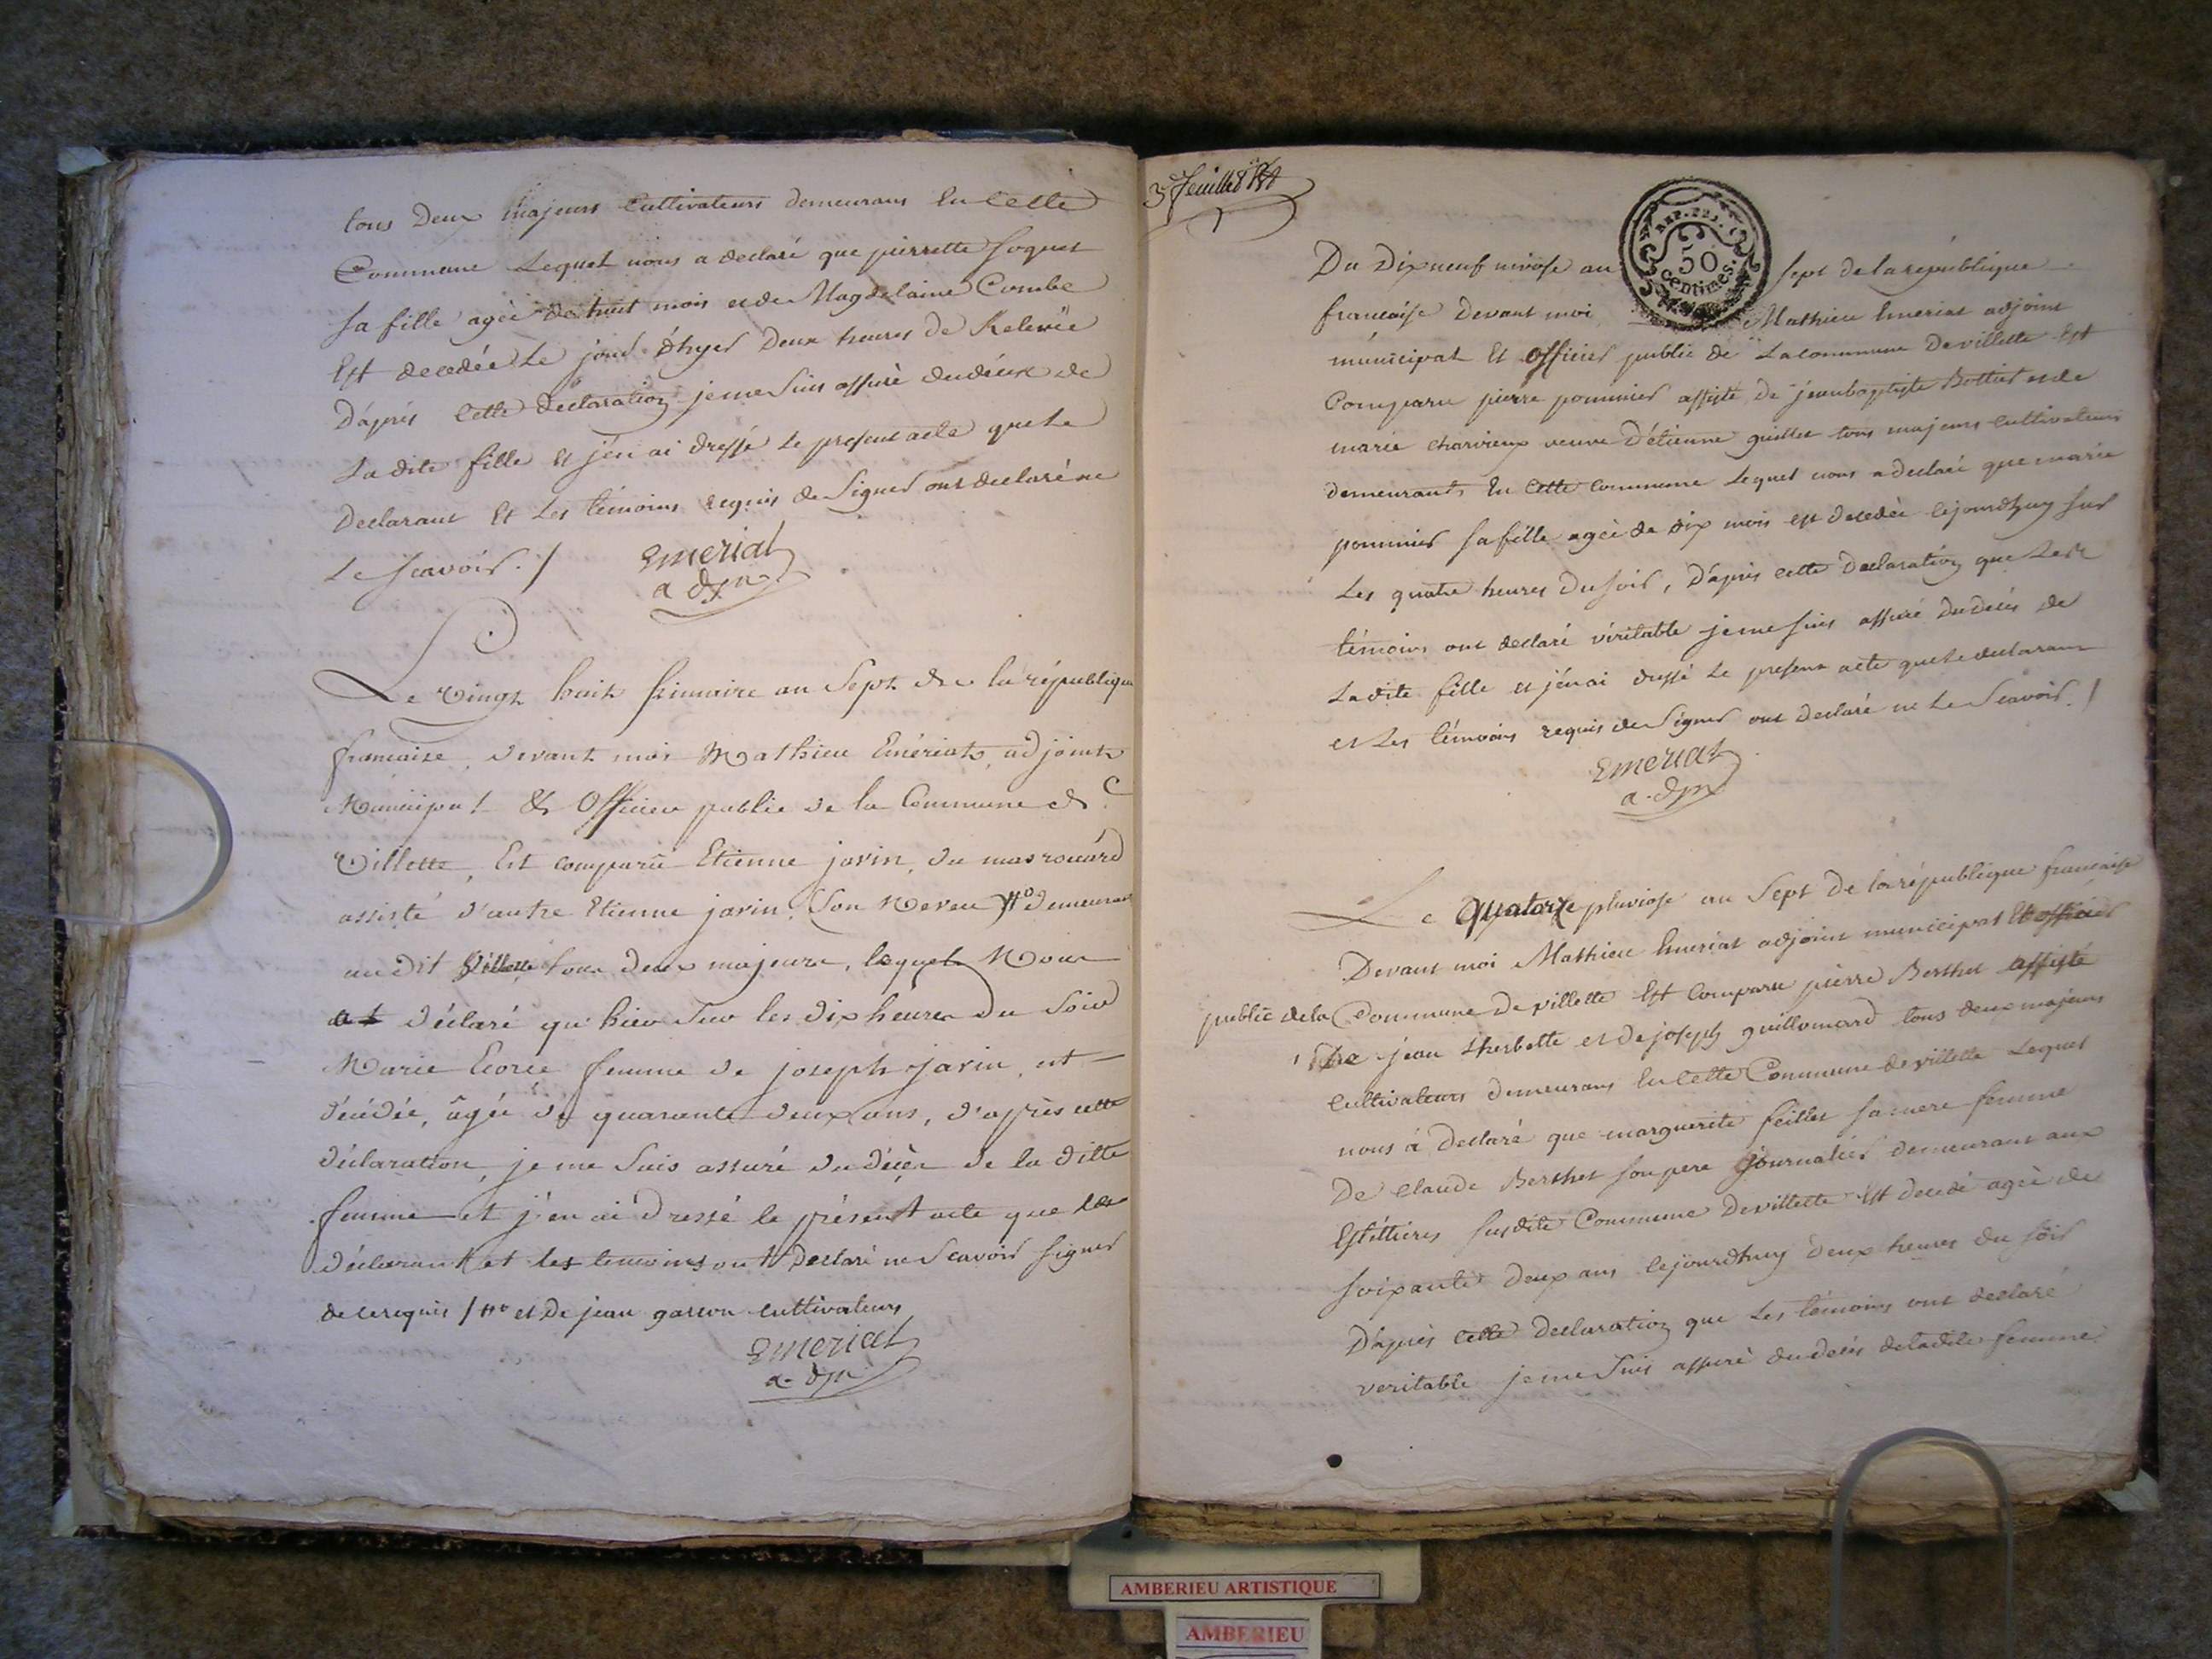 tous Deux majeurs Cultivateurs demeurans En Cette
Commune Lequel nous a declaré que pierrette foquet
sa fille ageè de huit mois et de Magdelaine Combe
Est decedée Le jour d'hyer Deux heures de Relevée
D'aprés Cette declaration je me Suis assuré du décés de
La dite fille et j'én ai dressé Le present acte que Le
Declarant Et Les témoins requis de Signer ont declaré ne
Le scavoir ./
Emeriat
a djn
Le Vingt huit frimaire an Sept de la république
francaise, devant moi Mathieu Emériat, adjoint
Municipal & Officier public de la Commune de
Villette, Est comparu Etienne jarin, du mas rouard
assisté d'autre Etienne jarin Son Neveu #° demeurant
au dit Villette tous deux majeurs, lequel Nous
a déclaré qu'hier Sur les dix heures du Soir
Marie Ecoree femme de joseph jarin, est
décédée, âgée de quarante deux ans, d'après cette
déclaration, je me Suis assuré du décès de la ditte
femme et j'en ai dressé le présent acte que le
déclarant et les temoins ont Declaré ne Scavoir signer
de ce requis / #° et De jean garcon cultivateurs
Emeriat
a. djn
3e feuillet
REP. FRA.
50
Centimes.
Du Dix neuf nivose an sept de la république
francaise Devant moi Mathieu Emeriat adjoint
municipal Et officier public de La commune De villette Est
Comparu pierre pommier assisté De jean baptiste Bottier et de
marie charvieux veuve D'étienne guillet tous majeurs cultivateurs
demeurants En Cette commune Lequel nous a declaré que marie
pommier sa fille ageè de dix mois est decedèe cejourdhuy sur
Les quatre heures Du soir, D'aprés cette Declaration que Les
témoins ont declaré véritable je me suis assuré du decés de
La dite fille et j'én ai dressé Le present acte que Le declarant
et Les témoins requis de Signer ont declaré ne Le Scavoir. /
Emeriat
a. djn
Le quatorze pluviose an Sept De la république francaise
Devant moi Mathieu Emeriat adjoint municipal Et officier
public de la Commune De villette Est Comparu pierre Berthet assisté
De jean Lherbette et de joseph guillomard tous deux majeurs
Cultivateurs demeurans En Cette Commune de villette Lequel
nous à Declaré que marguerite feillet sa mere femme
De Claude Berthet son pere journalier demeurant aux
Estéttieres susdite Commune De villette Est decedé ageè de
soixante Deux ans cejourdhuy deux heures du soir
D'aprés Cette Declaration que Les témoins ont declaré
veritable je me Suis assuré du decés de ladite femme
AMBERIEU ARTISTIQUE
AMBERIEU